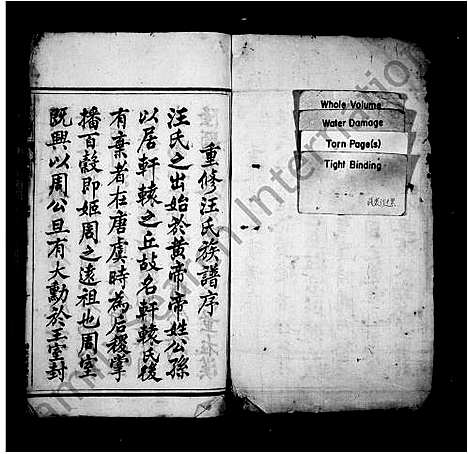 重修汪氏族譜序
汪氏之出始於黃帝帝姓公孫
以居軒轅之丘故名軒轅氏後
有棄者在唐虞時為后稷掌
播百穀即姬周之遠祖也周室
既興以周公旦有大勳於王室封
Whole Volume
Water Damage
Torn Page(s)
Tight Binding